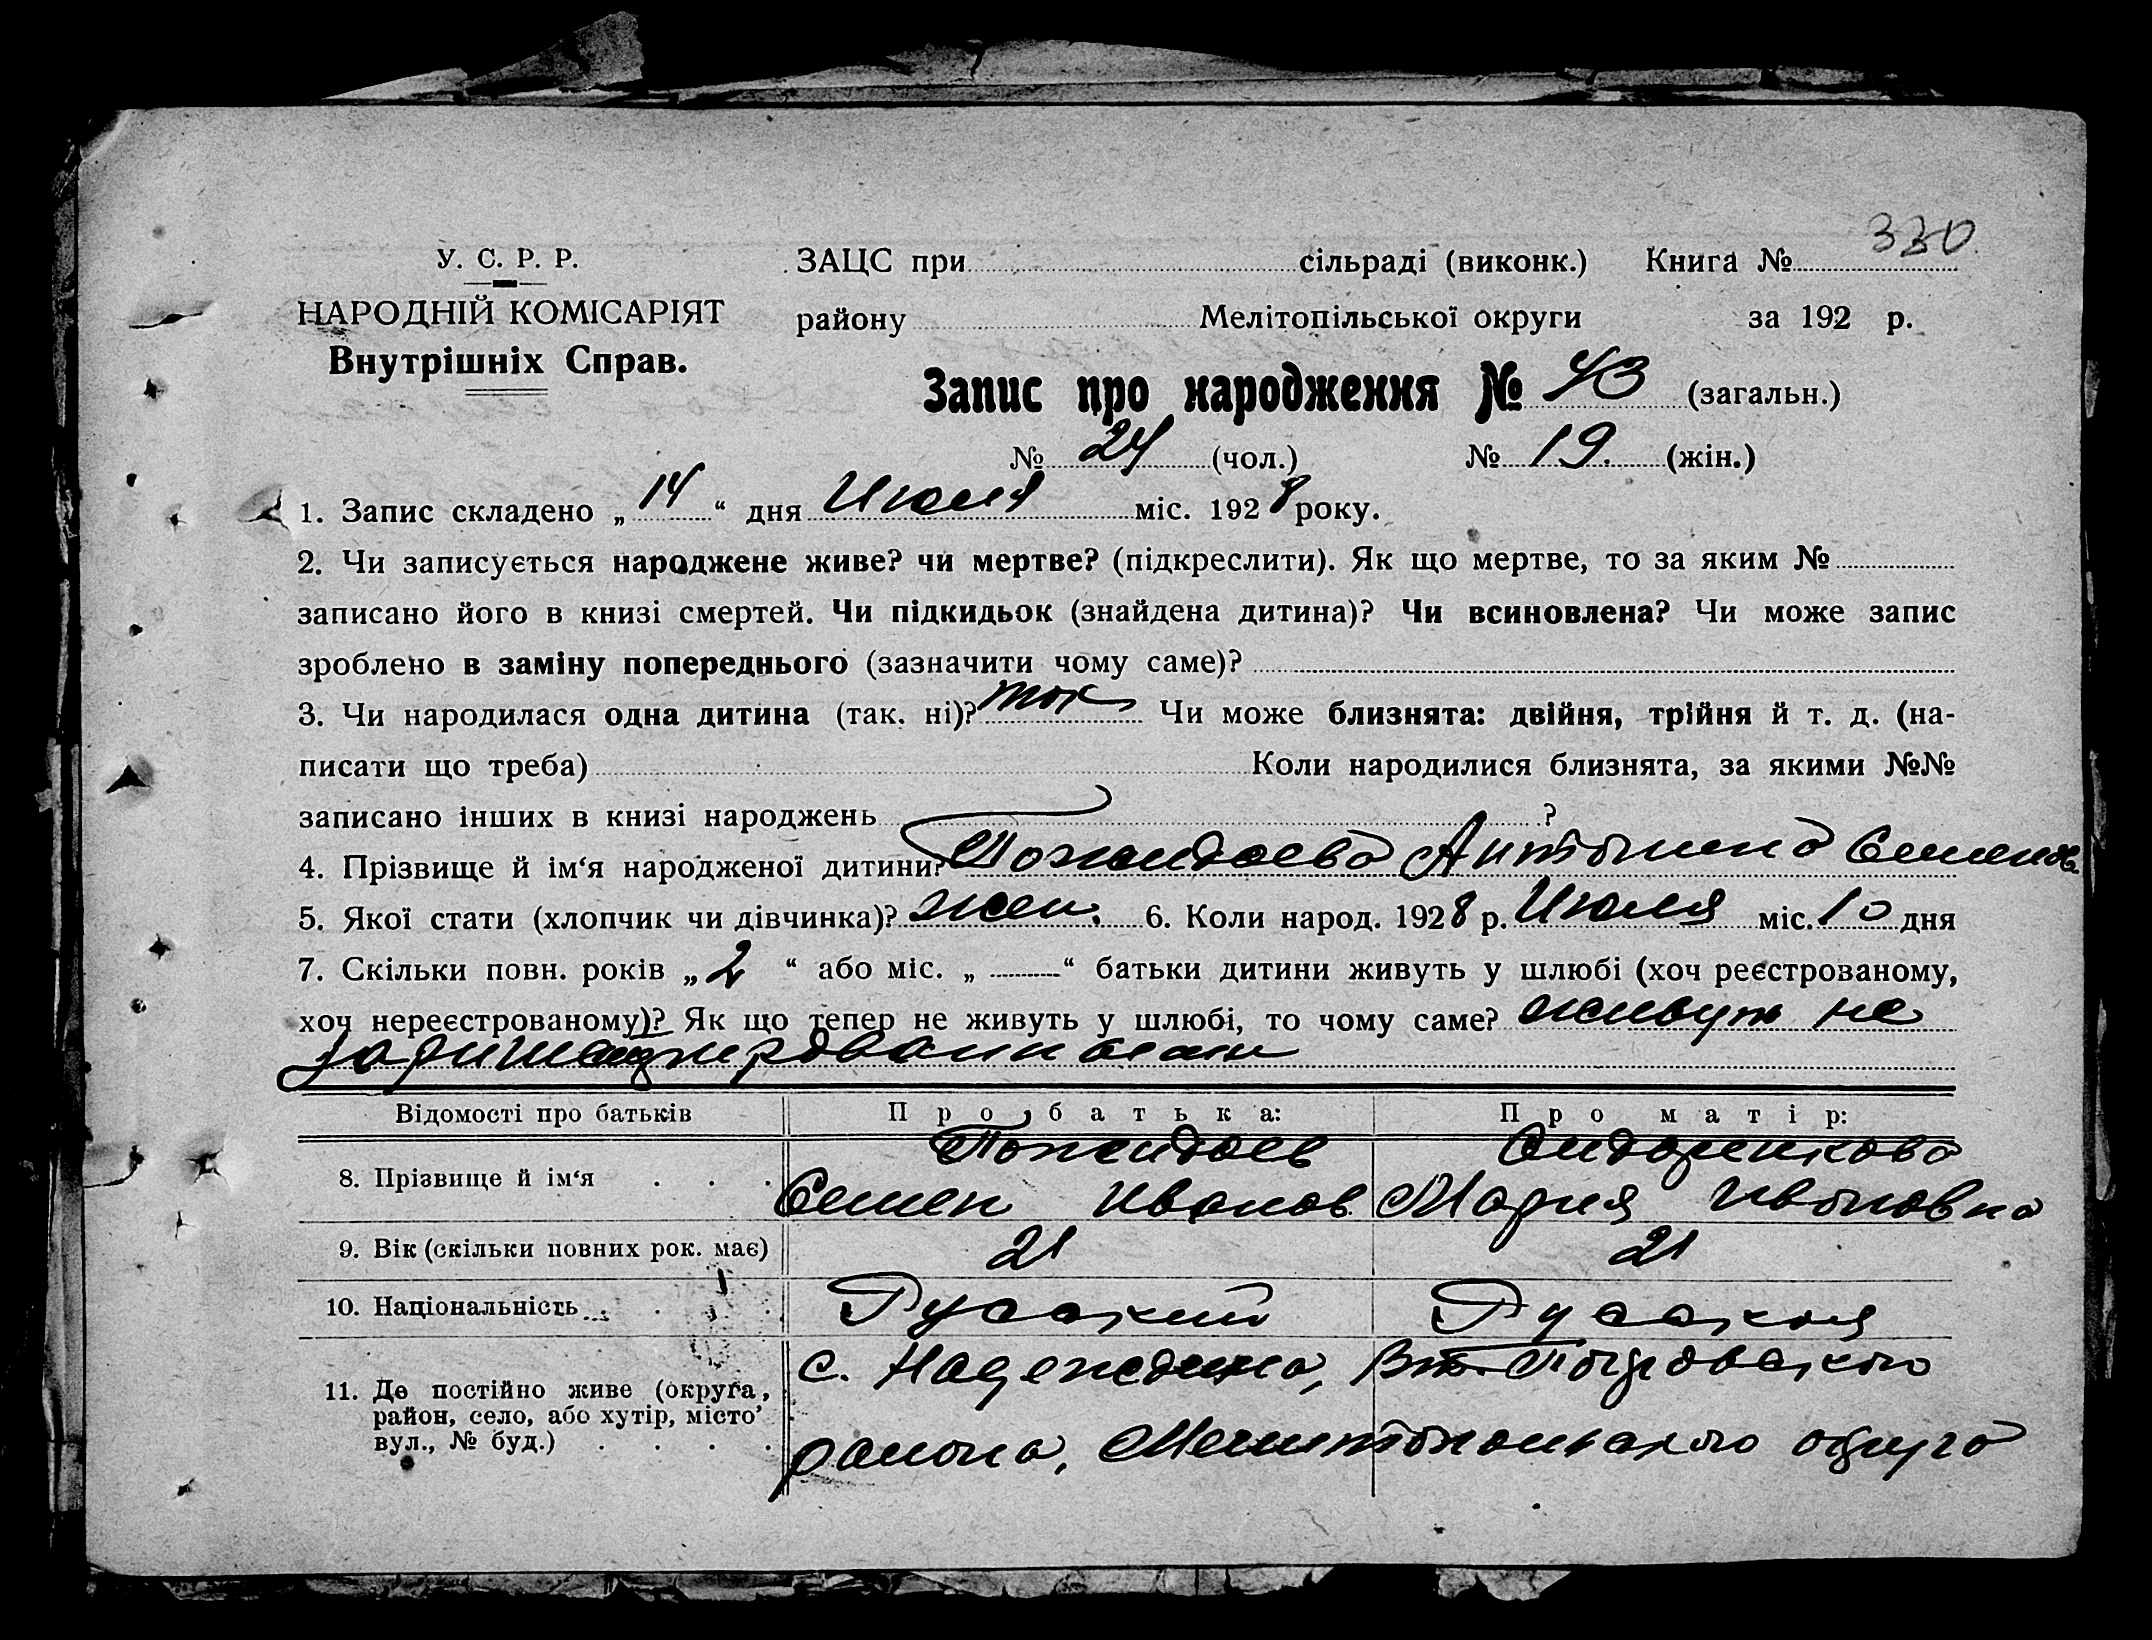 330
У. С. Р. Р. ЗАЦС при сільраді (виконк.) Книга №
НАРОДНІЙ КОМІСАРІЯТ району Мелітопільської округи за 192 р.
Внутрішніх Справ.
Запис про народження № 43 (загальн.)
№ 24 (чол.) № 19. (жін.)
1. Запис складено „14“ дня Июля міс. 1928 року.
2. Чи записується народжене живе? чи мертве? (підкреслити). Як що мертве, то за яким №
записано його в книзі смертей. Чи підкидьок (знайдена дитина)? Чи всиновлена? Чи може запис
зроблено в заміну попереднього (зазначити чому саме)?
3. Чи народилася одна дитина (так. ні)? так Чи може близнята: двійня, трійня й т. д. (на-
писати що треба) Коли народилися близнята, за якими №№
записано інших в книзі народжень ?
4. Прізвище й ім‘я народженої дитини? Пожидаева Антонина Семенов.
5. Якої стати (хлопчик чи дівчинка)? жен. 6. Коли народ. 1928 р. Июля міс. 10 дня
7. Скільки повн. років „2“ або міс. „ “ батьки дитини живуть у шлюбі (хоч реєстрованому,
хоч нереєстрованому)? Як що тепер не живуть у шлюбі, то чому саме? живут не
Відомості про батьків Про батька: Про матір:
Пожидаев Сидоренкова
8. Прізвище й ім‘я . . . Семен Иванов. Мария Ивановна
9. Вік (скільки повних рок. має) 21 21
10. Національність . . . . Русский Русская
с. Надеждино, Вт. Покровского
11. Де постійно живе (округа,
район, село, або хутір, місто
вул., № буд.) . . . .
района, Мелитопольского округа